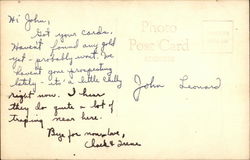 Hi John,
Got your cards.
Haven't found any gold
yet - probably won't. We
haven't gone prospecting
lately - it's a little chilly
right now. I hear
they do quite a lot of
traping near here.
Bye for now, love,
Chuck & Irene
Photo
Post Card
John Leonard